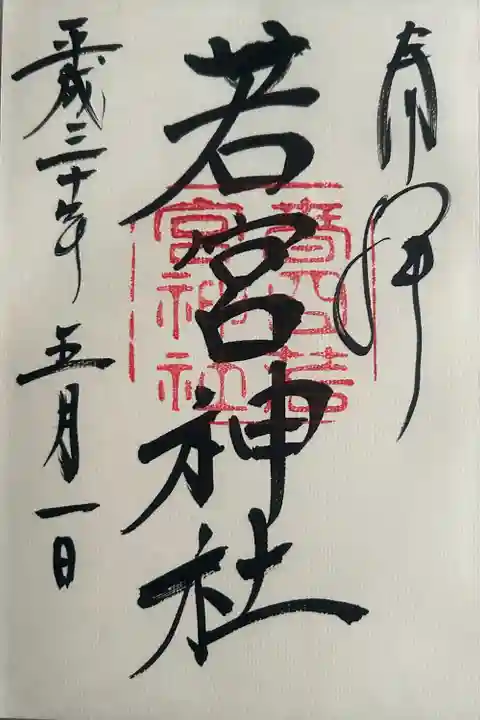 奉拝
若宮神社
平成三十年五月一日